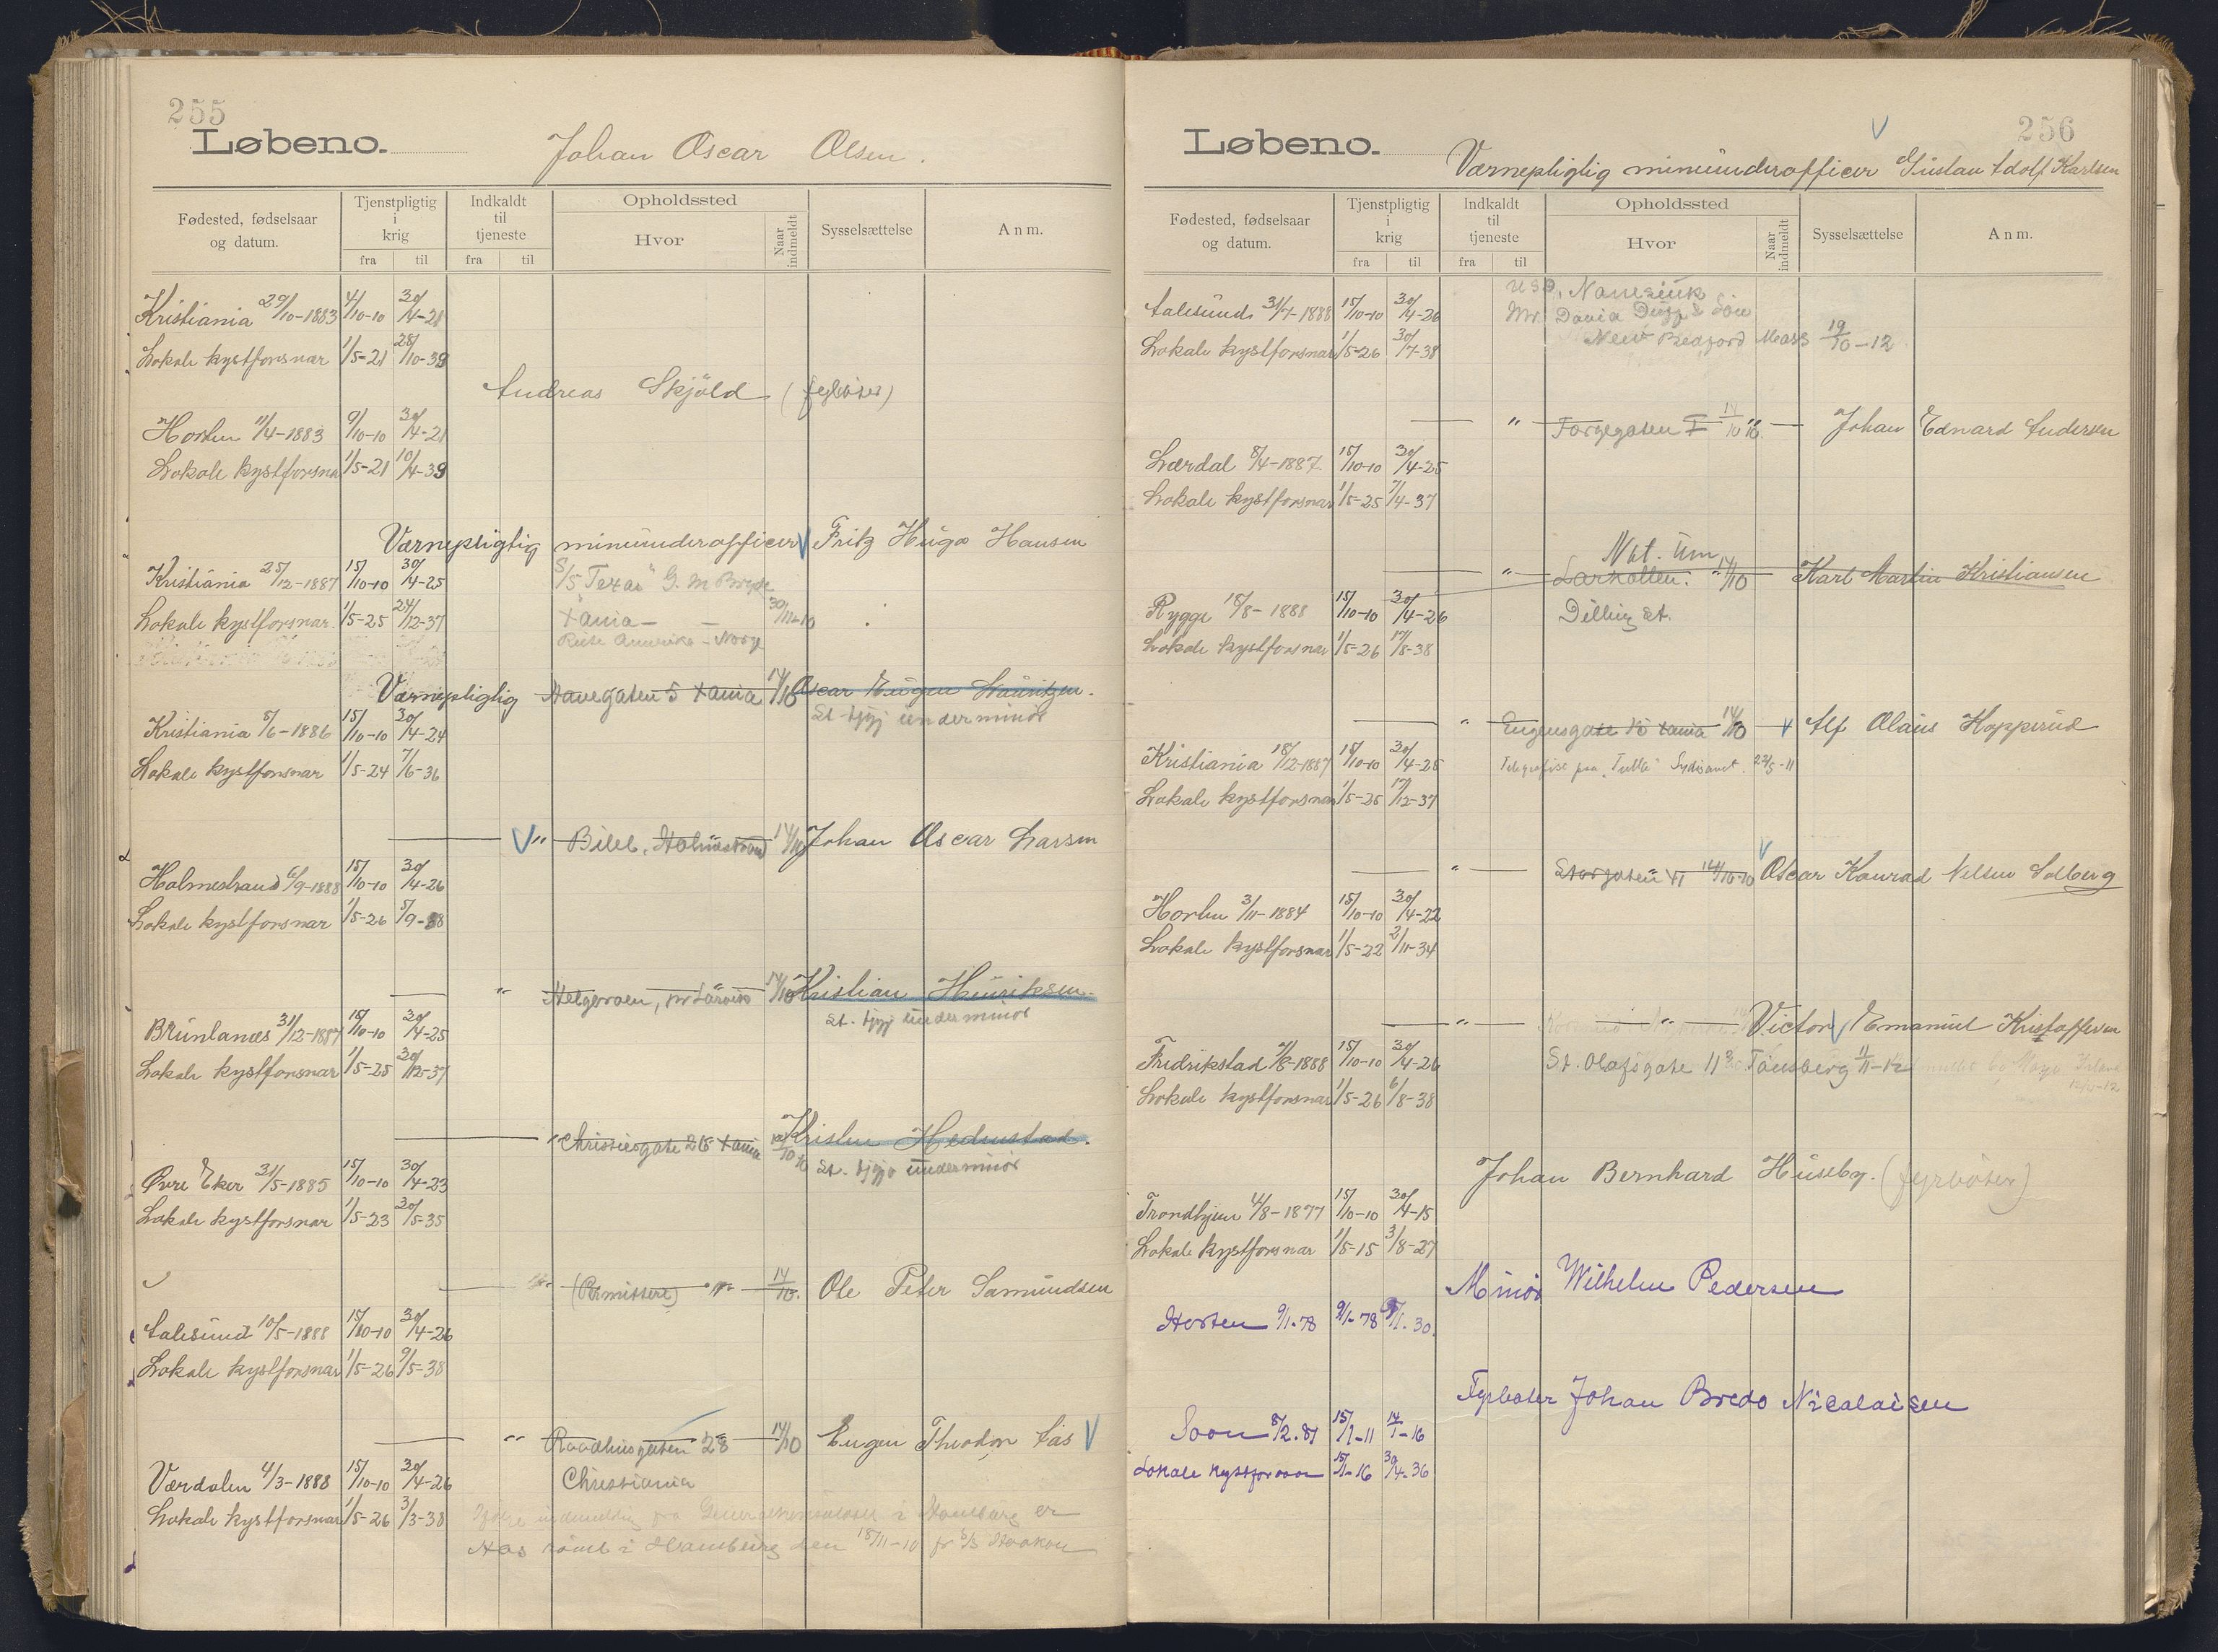 255
Løbeno.
Johan Oscar Olsen.
Fødested, fødselsaar og datum.
Tjenstpligtig i krig
fra til
Indkaldt til tjeneste
fra til
Opholdssted
Hvor
Naar indmeldt
Sysselsættelse
Anm.
Kristiania 29/10-1883 4/10-10 30/4-21
Lokale kystforsvar 1/5-21 28/10-39
Andreas Skjöld (fyrböter)
Horten 11/4-1883 9/10-10 30/4-21
Lokale kystforsva 1/5-21 10/4-39
Værnepligtig minünderofficer V Fritz Hügo Hansen
Kristiania 25/12-1887 15/10-10 30/4-25 S/S "Texas" G. M Bryde
Lokale kystforsvar. 1/5-25 24/12-37 Xania 30/11-10
Reise Amerika - Norge
Værnepligtig Xania 14/10 Oscar Eügen Laüritzen.
St. tjgj ünderminör
Kristiania 8/6-1886 15/10-10 30/4-24
Lokale kystforsvar 1/5-24 7/6-36
V " Holmestrand 14/10 Johan Oscar Larsen
Holmestrand 6/9-1888 15/10-10 30/4-26
Lokale kystforsvar 1/5-26 5/9-38
" Helgeroen, pr Larvik 14/10 Kristian Hinriksen
St. tjgj ünderminör
Brünlanæs 31/12-1887 15/10-10 30/4-25
Lokale kystforsvar 1/5-25 30/12-37
" Christiesgate 26 Xania Kristen Hedenstad.
St. tjgj ünderminör
Øvre Eker 31/5-1885 15/10-10 30/4-23
Lokale kystforsvar 1/5-23 30/5-35
(Permittert) 14/10. Ole Peter Samündsen
Aalesünd 10/5-1888 15/10-10 30/4-26
Lokale kystforsvar 1/5-26 9/5-38
" Raadhüsgaten 28 14/10 Eugen Theodor Aas V
Værdalen 4/3-1888 15/10-10 30/4-26 Christiania
Lokale kystforsvar 1/5-26 3/3-38
i Hamburg er
Aas i Hamburg den 18/11-10 S/S Haakon
256
Løbeno.
V
Værnepligtig minünderofficer Güstav Adolf Karlsen
Fødested, fødselsaar og datum.
Tjenstpligtig i krig
fra til
Indkaldt til tjeneste
fra til
Opholdssted
Hvor
Naar indmeldt
Sysselsættelse
Anm.
Aalesünd 31/7-1888 15/10-10 30/4-26
Mr. David Düff & Son
Lokale kystforsvar 1/5-26 30/7-38 New Bedford Mass 19/10-12
" Johan Edvard Andersen
Lærdal 8/4-1887 15/10-10 30/4-25
Lokale kystforsvar 1/5-25 7/4-37
" Larkollen. 14/10 Karl Martin Kristiansen
Rygge 18/8-1888 15/10-10 30/4-26 Dilling st.
Lokale kystforsvar 1/5-26 17/8-38
" Eugensgate 15 Xania 14/10 V Alf Olaüs Hopperüd
Kristiania 18/12-1887 15/10-10 30/4-25 Telegrafist paa Sydishavet. 22/5-11
Lokale kystforsvar 1/5-25 17/12-37
" Storgaten 14/10-10 V Oscar Konrad Nelsen Solberg
Horten 3/11-1884 15/10-10 30/4-22
Lokale kystforsvar 1/5-22 2/11-34
" Victor V Emanuel Kristoffersen
Fredrikstad 7/8-1888 15/10-10 30/4-26 St. Olafsgate 11 Tönsberg
Lokale kystforsvar 1/5-26 6/8-38
Johan Bernhard Hüseby. (fyrböter)
Trondhjem 4/8-1877 15/10-10 30/4-15
Lokale kystforsvar 1/5-15 3/8-27
Minör Wilhelm Pedersen
Horten 9/1-78 9/1-78 1-30.
Fyrböter Johan Bredo Nicolaisen
Soon 8/2.81 15/1-11 14/1-16
Lokale kystforsvar 15/1-16 30/4-36